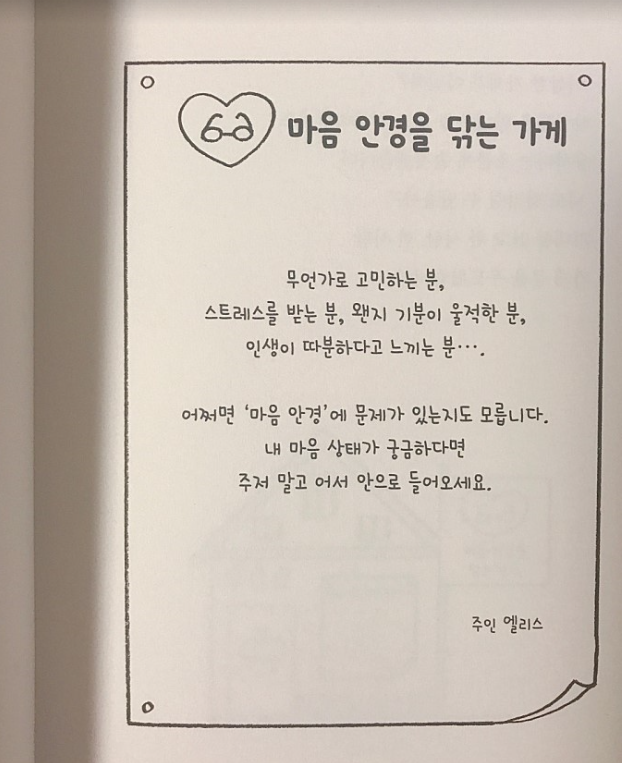 마음 안경을 닦는 가게
무언가로 고민하는 분,
스트레스를 받는 분, 왠지 기분이 울적한 분,
인생이 따분하다고 느끼는 분···.
어쩌면 ‘마음 안경’에 문제가 있는지도 모릅니다.
내 마음 상태가 궁금하다면
주저 말고 어서 안으로 들어오세요.
주인 엘리스